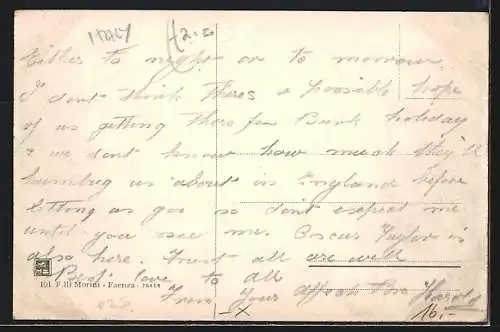 ITALY
Either to night or to morrow.
I dont think theres a possible hope
of us getting there for Bank holiday
& we dont know how much they'll
humbug us about in England before
letting us go so dont expect me
until you see me. Oscar Taylor is
also here. Trust all are well
Best love to all
From Your affect Bro Harold
Ed. F.lli Morini - Faenza -
16.-